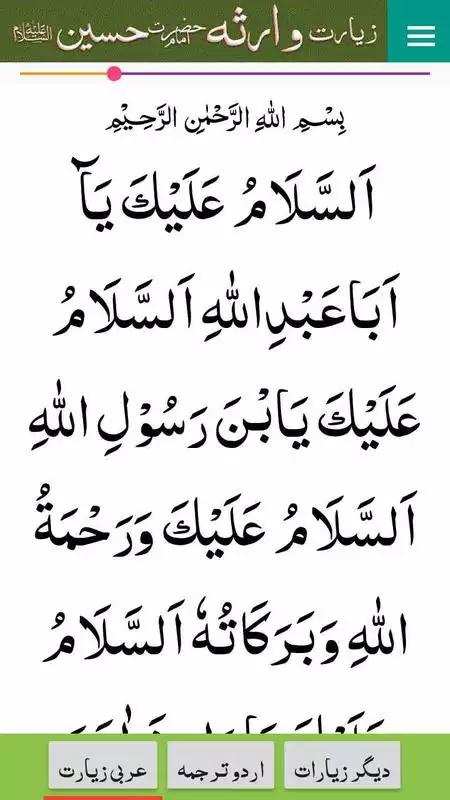 زیارت وارثہ حضرت امام حسین علیہ السلام
بِسْمِ اللهِ الرَّحْمٰنِ الرَّحِيْمِ
اَلسَّلَامُ عَلَيْكَ يَآ
اَبَاعَبْدِاللهِ اَلسَّلَامُ
عَلَيْكَ يَابْنَ رَسُوْلِ اللهِ
اَلسَّلَامُ عَلَيْكَ وَرَحْمَةُ
اللهِ وَبَرَكَاتُهٗ اَلسَّلَامُ
دیگر زیارات
اردو ترجمہ
عربی زیارت